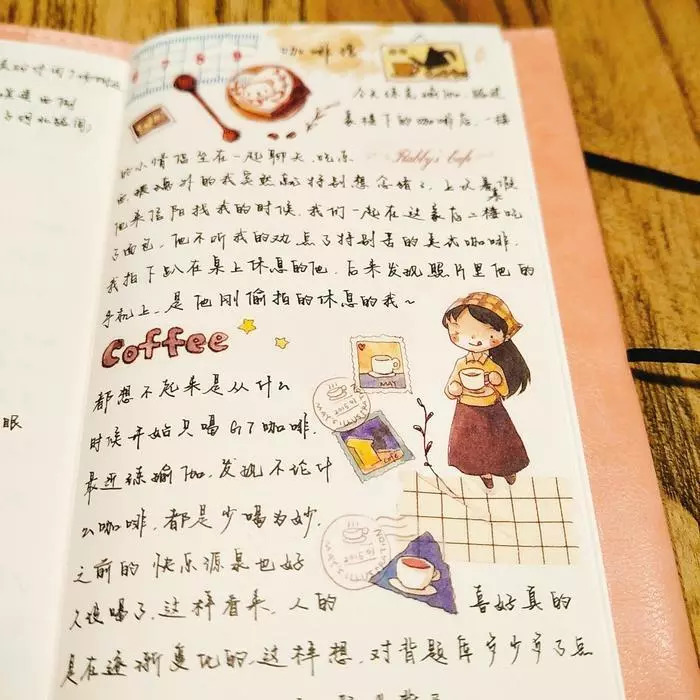 7 8 9
咖啡
今天练完瑜伽,路过
家楼下的咖啡店,一楼
Rabby's Cafe
的小情侣坐在一起聊天,吃东
西,玻璃外的我突然就特别想念猪了,上次暑假
他来信阳找我的时候,我们一起在这家店二楼吃
了面包,他不听我的劝点了特别苦的美式咖啡,
我拍下趴在桌上休息的他,后来发现照片里他的
手机上,是他刚偷拍的休息的我~
Coffee
都想不起来是从什么
时候开始只喝G7咖啡,
最近练瑜伽,发现不论什
么咖啡,都是少喝为妙,
之前的快乐源泉也好
久没喝了,这样看来,人的 喜好真的
是在逐渐变化的,这样想,对背题库多少多了点
MAY
2015.01
MAY'S ILLUSTRATION
cafe
2015.01
MAY'S ILLUSTRATION
眼